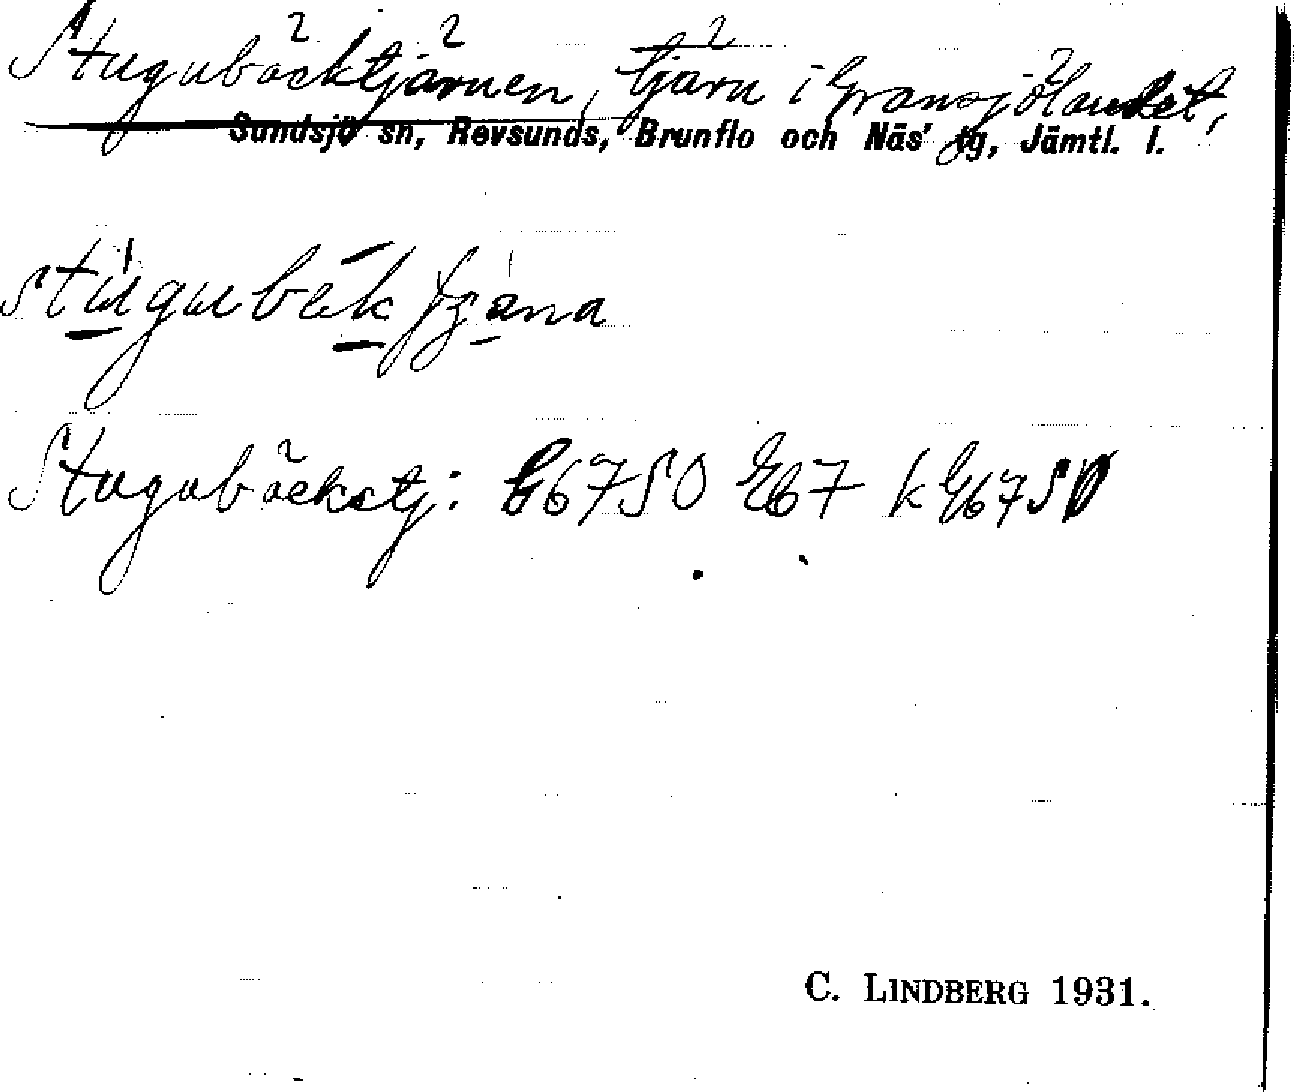 Stugubäcktjärnen, tjärn i Gransjölandet,
Sundsjö sn, Revsunds, Brunflo och Näs' tg, Jämtl. l.
Stugubäckstj: G67SO E67 k E67SO
C. LINDBERG 1931.